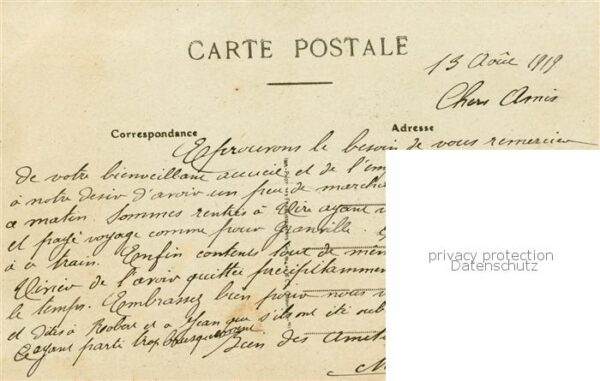 CARTE POSTALE
13 Août 1919
Chers Amis
Correspondance
Adresse
Eprouvons le besoin de vous remercier
de votre bienveillant accueil et de l'em
à notre desir d'avoir un peu de marcha
ce matin. Sommes rentrés à Vire ayant
et payé voyage comme pour Granville.
à ce train. Enfin contents tout de mêm
de l'avoir quittée précipitamment
le temps. Embrassez bien pour nous
et dites à Robert et à Jean que s'ils ont été oub
ayant parti trop brusquement
Bien des Amitié
privacy protection
Datenschutz